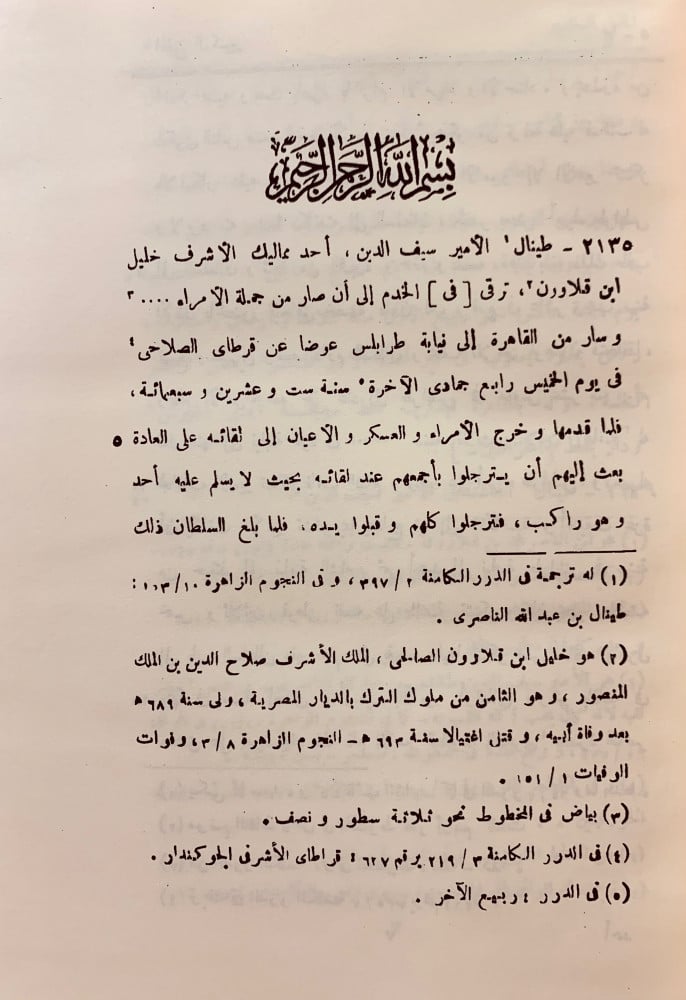 بسم الله الرحمن الرحيم
٢١٣٥ - طينال١ الأمير سيف الدين ، أحد مماليك الأشرف خليل
ابن قلاورن٢، ترقى [ فى ] الخدم إلى أن صار من جملة الأمراء .... ٣
و سار من القاهرة إلى نيابة طرابلس عوضا عن قرطاى الصلاحى٤
فى يوم الخميس رابع جمادى الآخرة٥ سنة ست و عشرين و سبعمائة ،
فلما قدمها و خرج الأمراء و العسكر و الأعيان إلى لقائه على العادة ٥
بعث إليهم أن يترجلوا بأجمعهم عند لقائه بحيث لا يسلم عليه أحد
و هو راكب ، فترجلوا كلهم و قبلوا يده . فلما بلغ السلطان ذلك
(١) له ترجمة فى الدرر الكامنة ٢ / ٣٩٧ ، و فى النجوم الزاهرة ١٠ / ١٠٣ :
طينال بن عبد الله الناصرى .
(٢) هو خليل ابن قلاوون الصالحى ، الملك الأشرف صلاح الدين بن الملك
المنصور ، و هو الثامن من ملوك الترك بالديار المصرية ، ولى سنة ٦٨٩ ه
بعد وفاة أبيه ، و قتل اغتيالا سنة ٦٩٣ ه - النجوم الزاهرة ٨ / ٣ ، و فوات
الوفيات ١ / ١٥١ .
(٣) بياض فى المخطوط نحو ثلاثة سطور و نصف .
(٤) فى الدرر الكامنة ٣ / ٢١٩ برقم ٦٢٧ : قراطاى الأشرفى الجوكندار .
(٥) فى الدرر : ربيع الآخر .